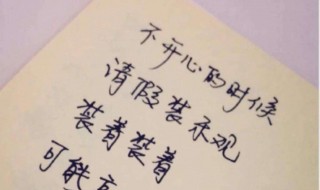 不开心的时候
请假装乐观
装着装着
可能